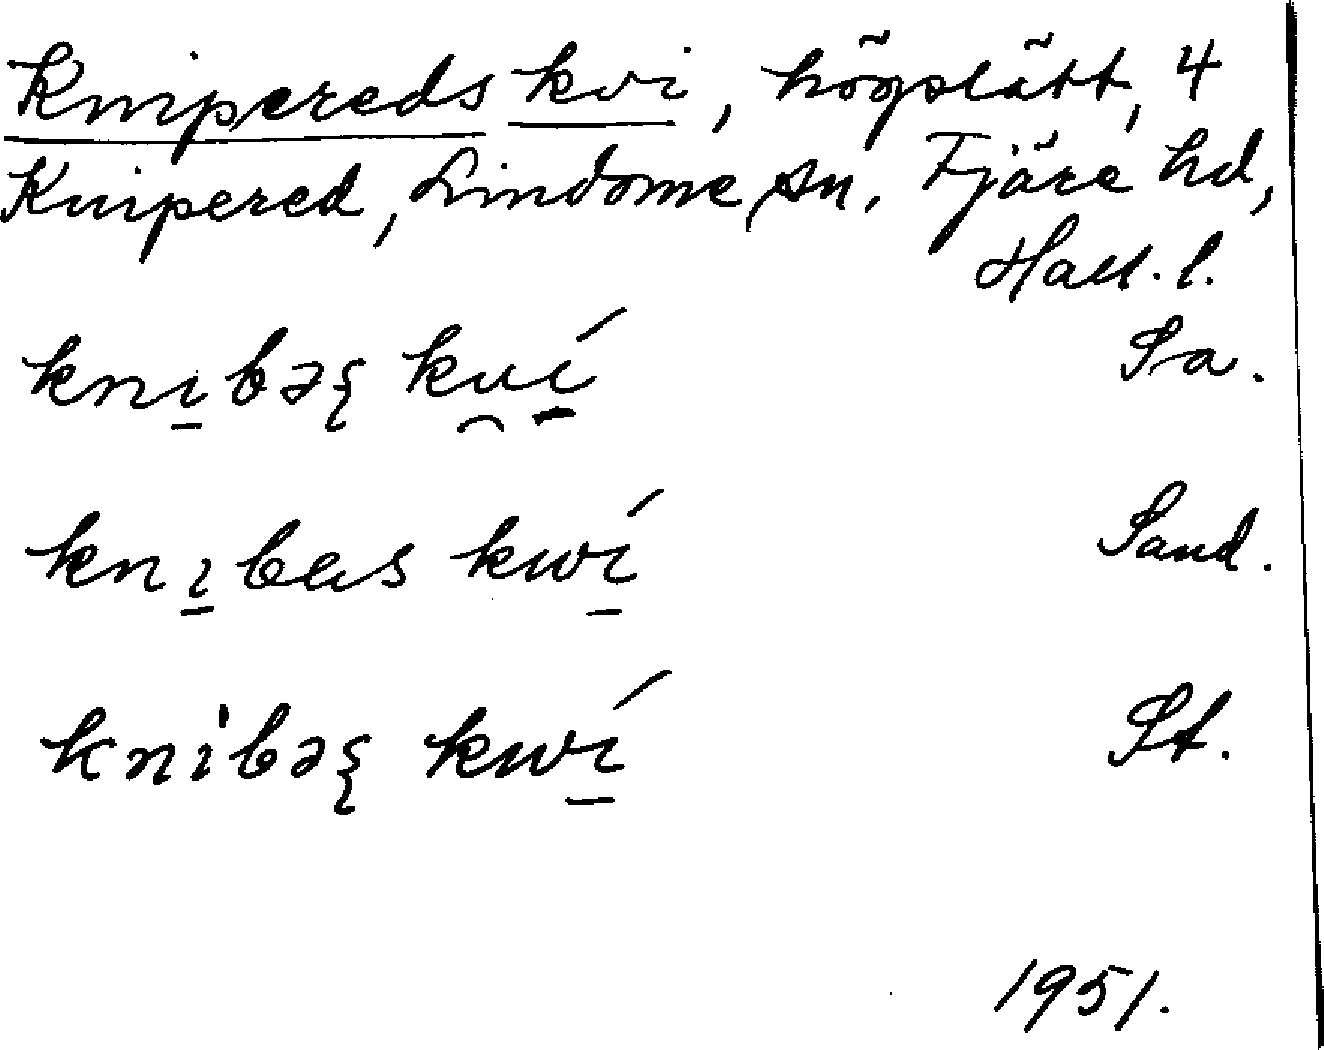 Knipereds kvi, högslätt, 4
Knipered, Lindome sn, Fjäre hd,
Hall. l.
knı̲bəş kv̯í̲ Sa.
knı̲bɐs kwí̲ Sand.
knı̍bəş kwí̲ St.
1951.